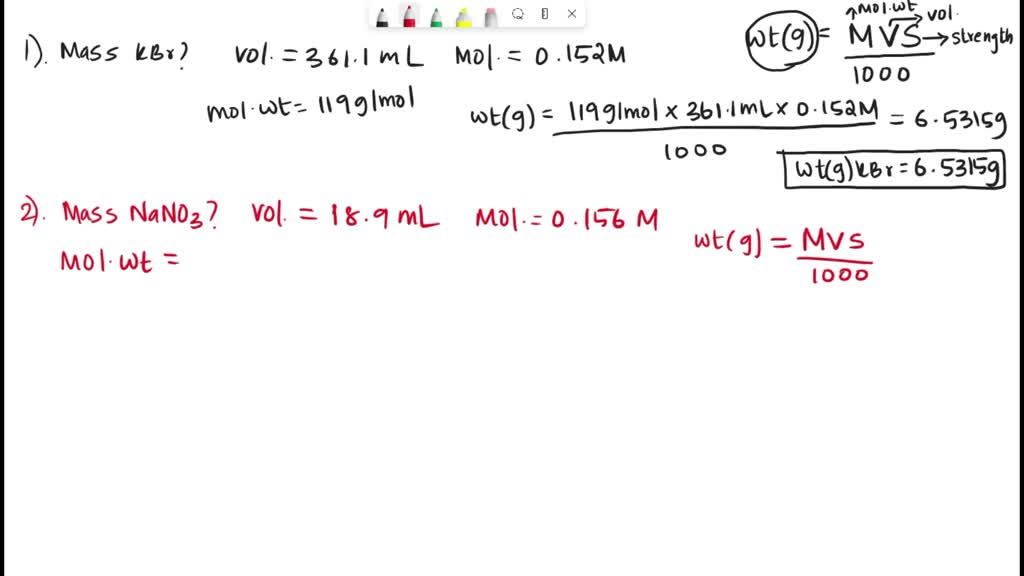 1). Mass kBr? vol. = 361.1 mL Mol. = 0.152M
wt(g) = MVS/1000
mol.wt
vol.
strength
mol.wt = 119g/mol
wt(g) = 119g/mol x 361.1mL x 0.152M / 1000 = 6.5315g
wt(g) kBr = 6.5315g
2). Mass NaNO₃? Vol. = 18.9 mL Mol. = 0.156 M
Mol.wt =
wt(g) = MVS/1000